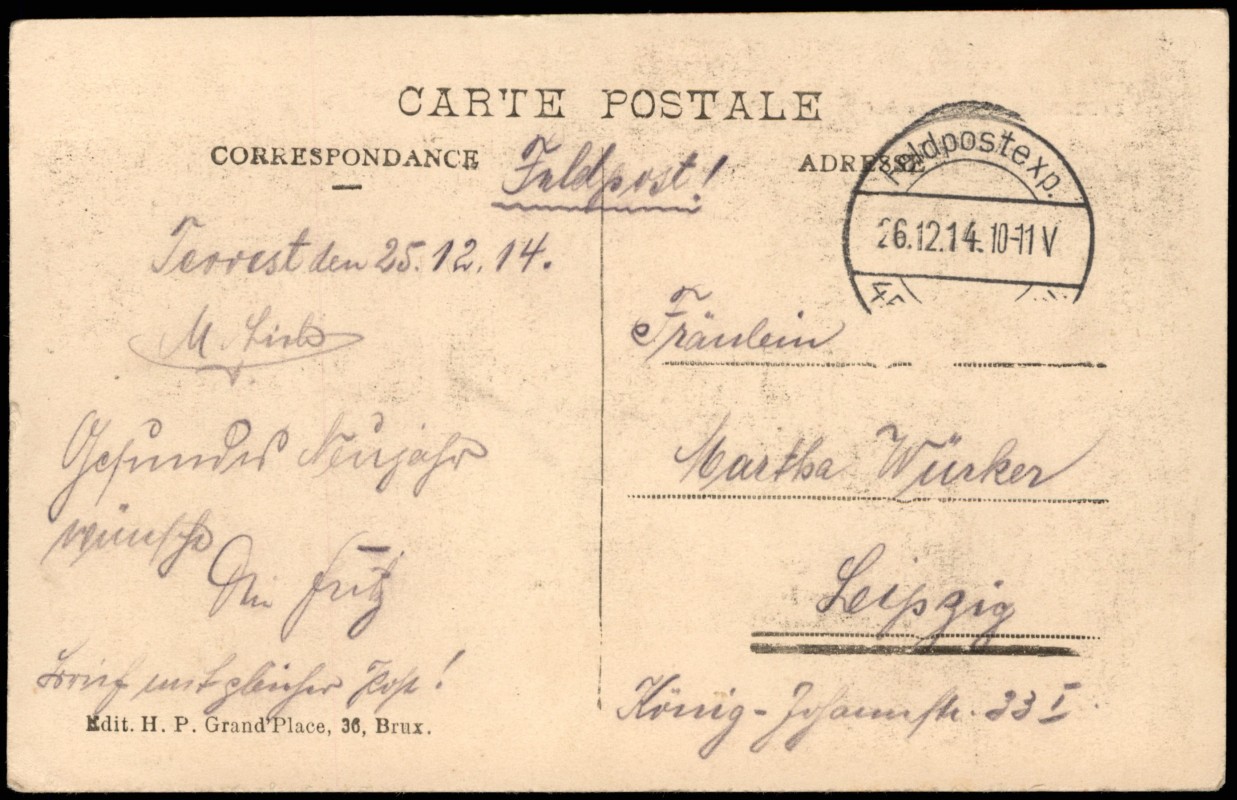 CARTE POSTALE
CORRESPONDANCE
ADRESSE
Feldpost!
Feldpostexp.
26.12.14. 10-11 V
Terrest den 25.12.14.
M.
Gesundes Neujahr
wünscht
Dein Fritz
Brief mit gleicher Post!
Edit. H. P. Grand'Place, 36, Brux.
Fräulein
Martha Würker
Leipzig
König-Johannstr. 33 I